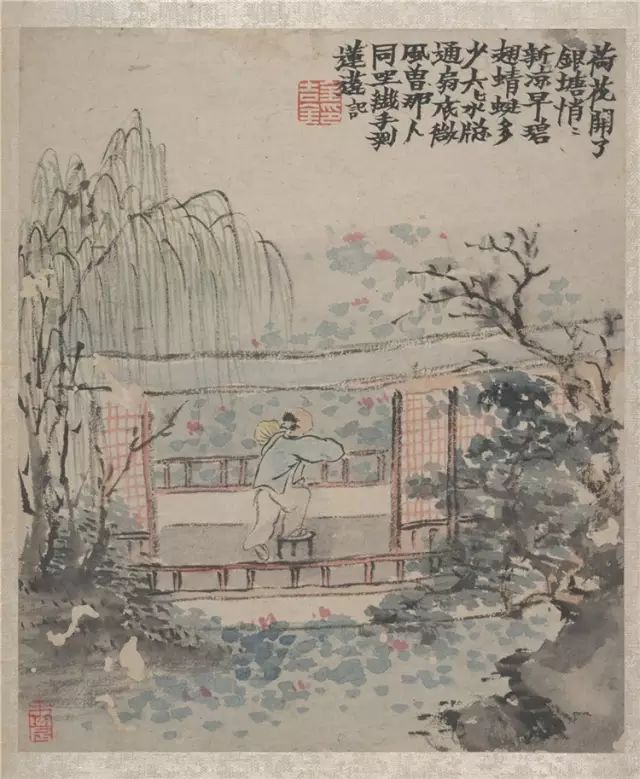 荷花開了
銀塘悄〻
新涼早碧
翅蜻蜓多
少六〻水窓
通扇底微
風曾那人
同坐纖手剝
蓮蓬記